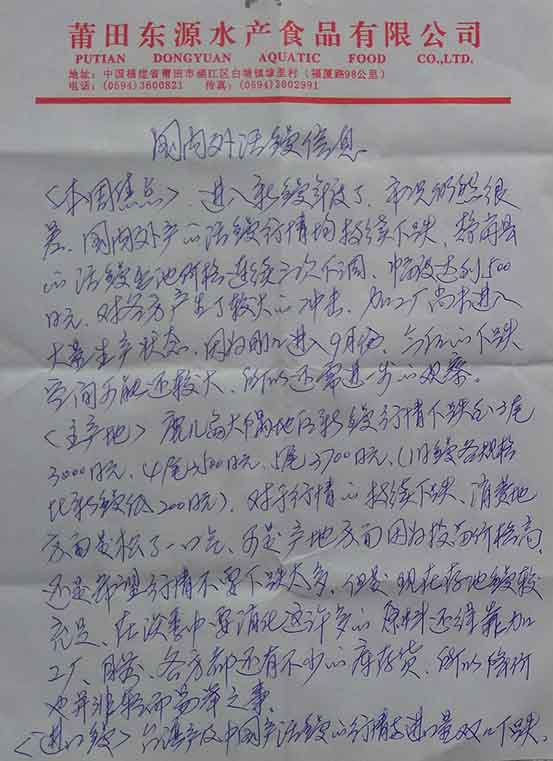 莆田东源水产食品有限公司
PUTIAN DONGYUAN AQUATIC FOOD CO.,LTD.
地址：中国福建省莆田市涵江区白塘镇埭里村（福厦路98公里）
电话：(0594)3600821 传真：(0594)3602991
国内外活鳗信息
<本周焦点>、进入新鳗年段了、市况仍然很
差、国内外产的活鳗行情均持续下跌、静冈县
的活鳗出池价格连续三次下调、幅度达到500
日元、对各方产生了较大的冲击、加工厂尚未进入
大量生产状态、因为刚刚进入9月份、今后的下跌
空间可能还较大、所以还需进一步的观察。
<主产地> 鹿儿岛大隅地区新鳗行情下跌到3尾
3000日元、4尾3500日元、5尾3700日元、(旧鳗各规格
比新鳗低200日元)、对于行情的持续下跌、消费地
方面是松了一口气、可是产地方面因为投苗价格高、
还是希望行情不要下跌太多、但是现在存池鳗较
充足、在淡季中要消化这许多的原料还得靠加
工厂、目前、各方都还有不少的库存货、所以降价
也并非轻而易举之事。
<进口鳗> 台湾产及中国产活鳗的行情与进口量双双下跌、